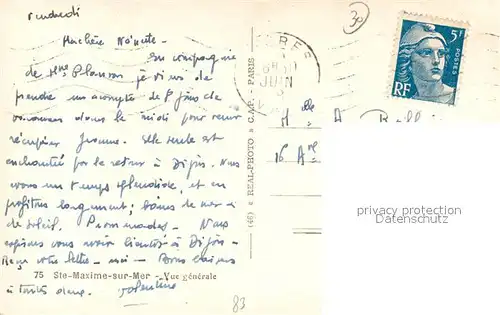 Vendredi
30
Ma chère Nénette -
En compagnie
de Mme je viens de
prendre un acompte de 8 jours de
vacances dans le midi pour venir
récupérer Jeanne. Elle seule est
enchantée par le retour à Dijon. Nous
avons un temps splendide, et en
profitons longuement; bains de mer &
de soleil. Promenades - Nous
espérons vous voir bientôt à Dijon -
Reçu votre lettre - merci - Bons baisers
75 Ste-Maxime-sur-Mer - Vue générale
à toutes deux. Valentine
83
(46) « REAL-PHOTO » C.A.P. - PARIS
JUIN
5F
POSTES
RF
Mlle A.
16 Ave
privacy protection
Datenschutz